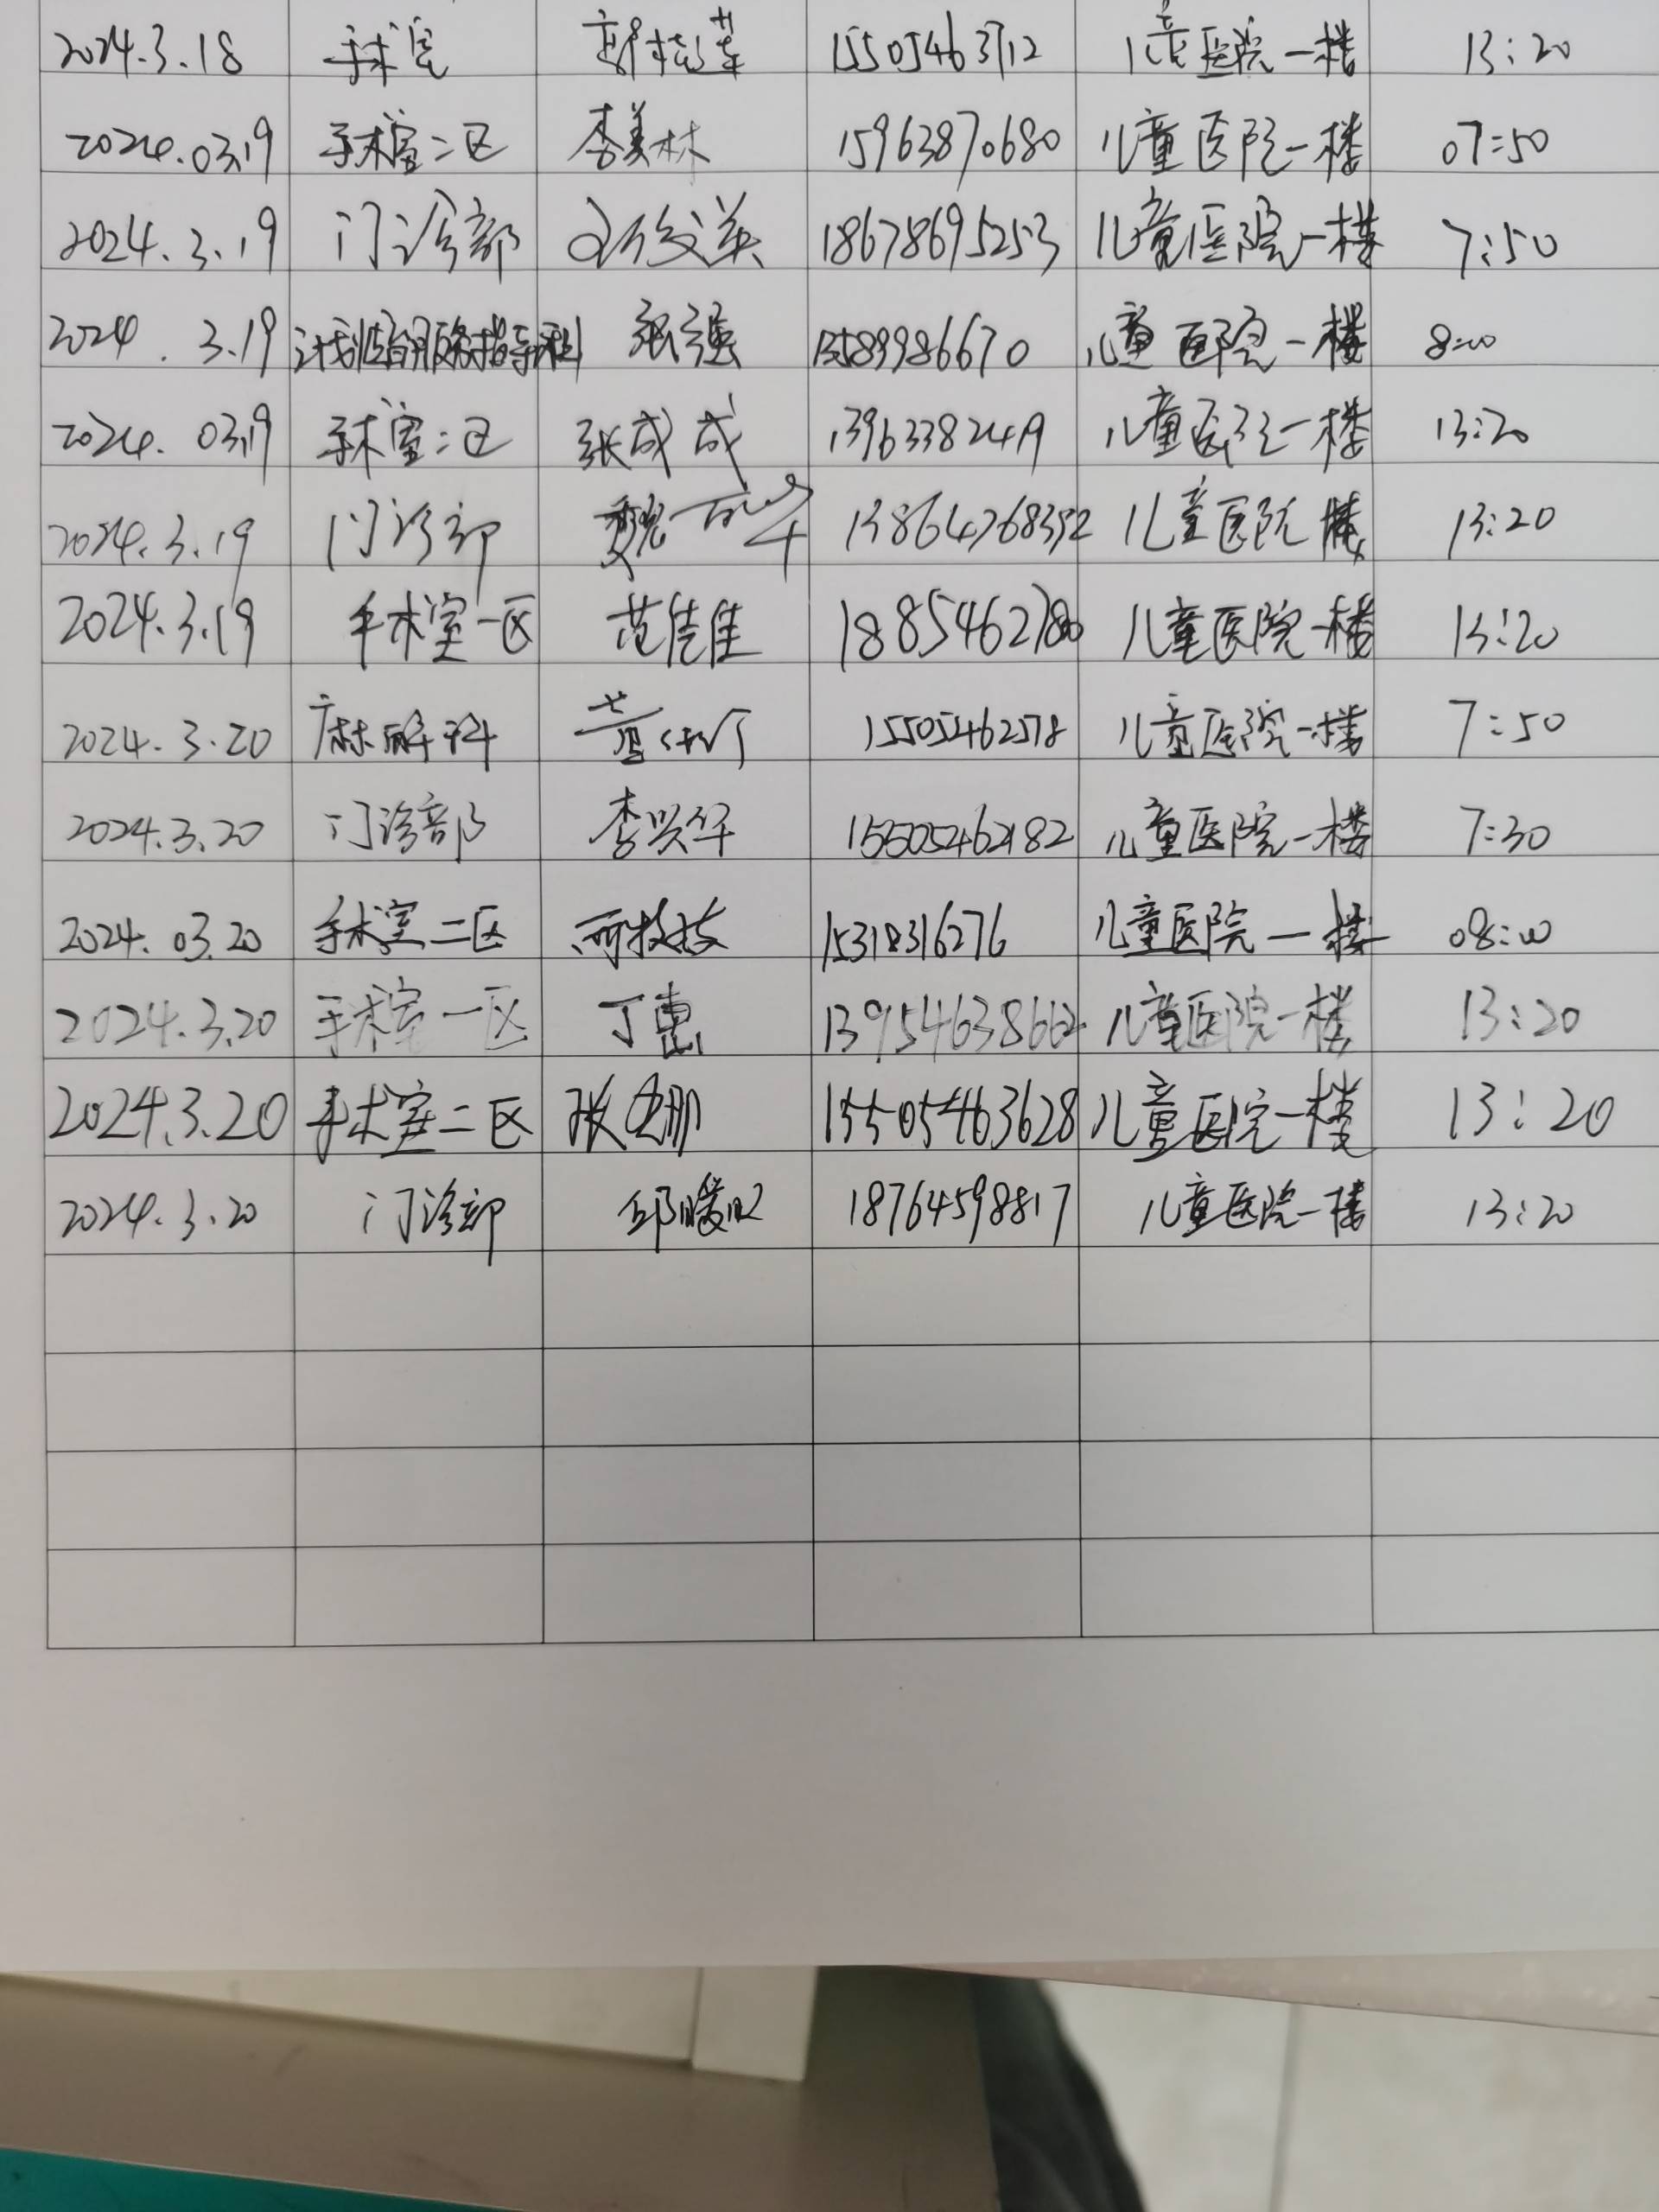 2024.3.18 手术室 郭桂苹 15505463712 儿童医院一楼 13:20
2024.03.19 手术室二区 李美林 15963870680 儿童医院一楼 07:50
2024.3.19 门诊部 18678695253 儿童医院一楼 7:50
2024.3.19 计划生育服务指导科 张强 13589986670 儿童医院一楼 8:00
2024.03.19 手术室二区 张成成 13963382419 儿童医院一楼 13:20
2024.3.19 门诊部 13864768392 儿童医院一楼 13:20
2024.3.19 手术室一区 范佳佳 儿童医院一楼 13:20
2024.3.20 麻醉科 15505462578 儿童医院一楼 7:50
2024.3.20 门诊部 李兴华 15505462182 儿童医院一楼 7:30
2024.03.20 手术室二区 15318316276 儿童医院一楼 08:00
2024.3.20 手术室一区 丁惠 13954638662 儿童医院一楼 13:20
2024.3.20 手术室二区 15505463628 儿童医院一楼 13:20
2024.3.20 门诊部 18764598817 儿童医院一楼 13:20